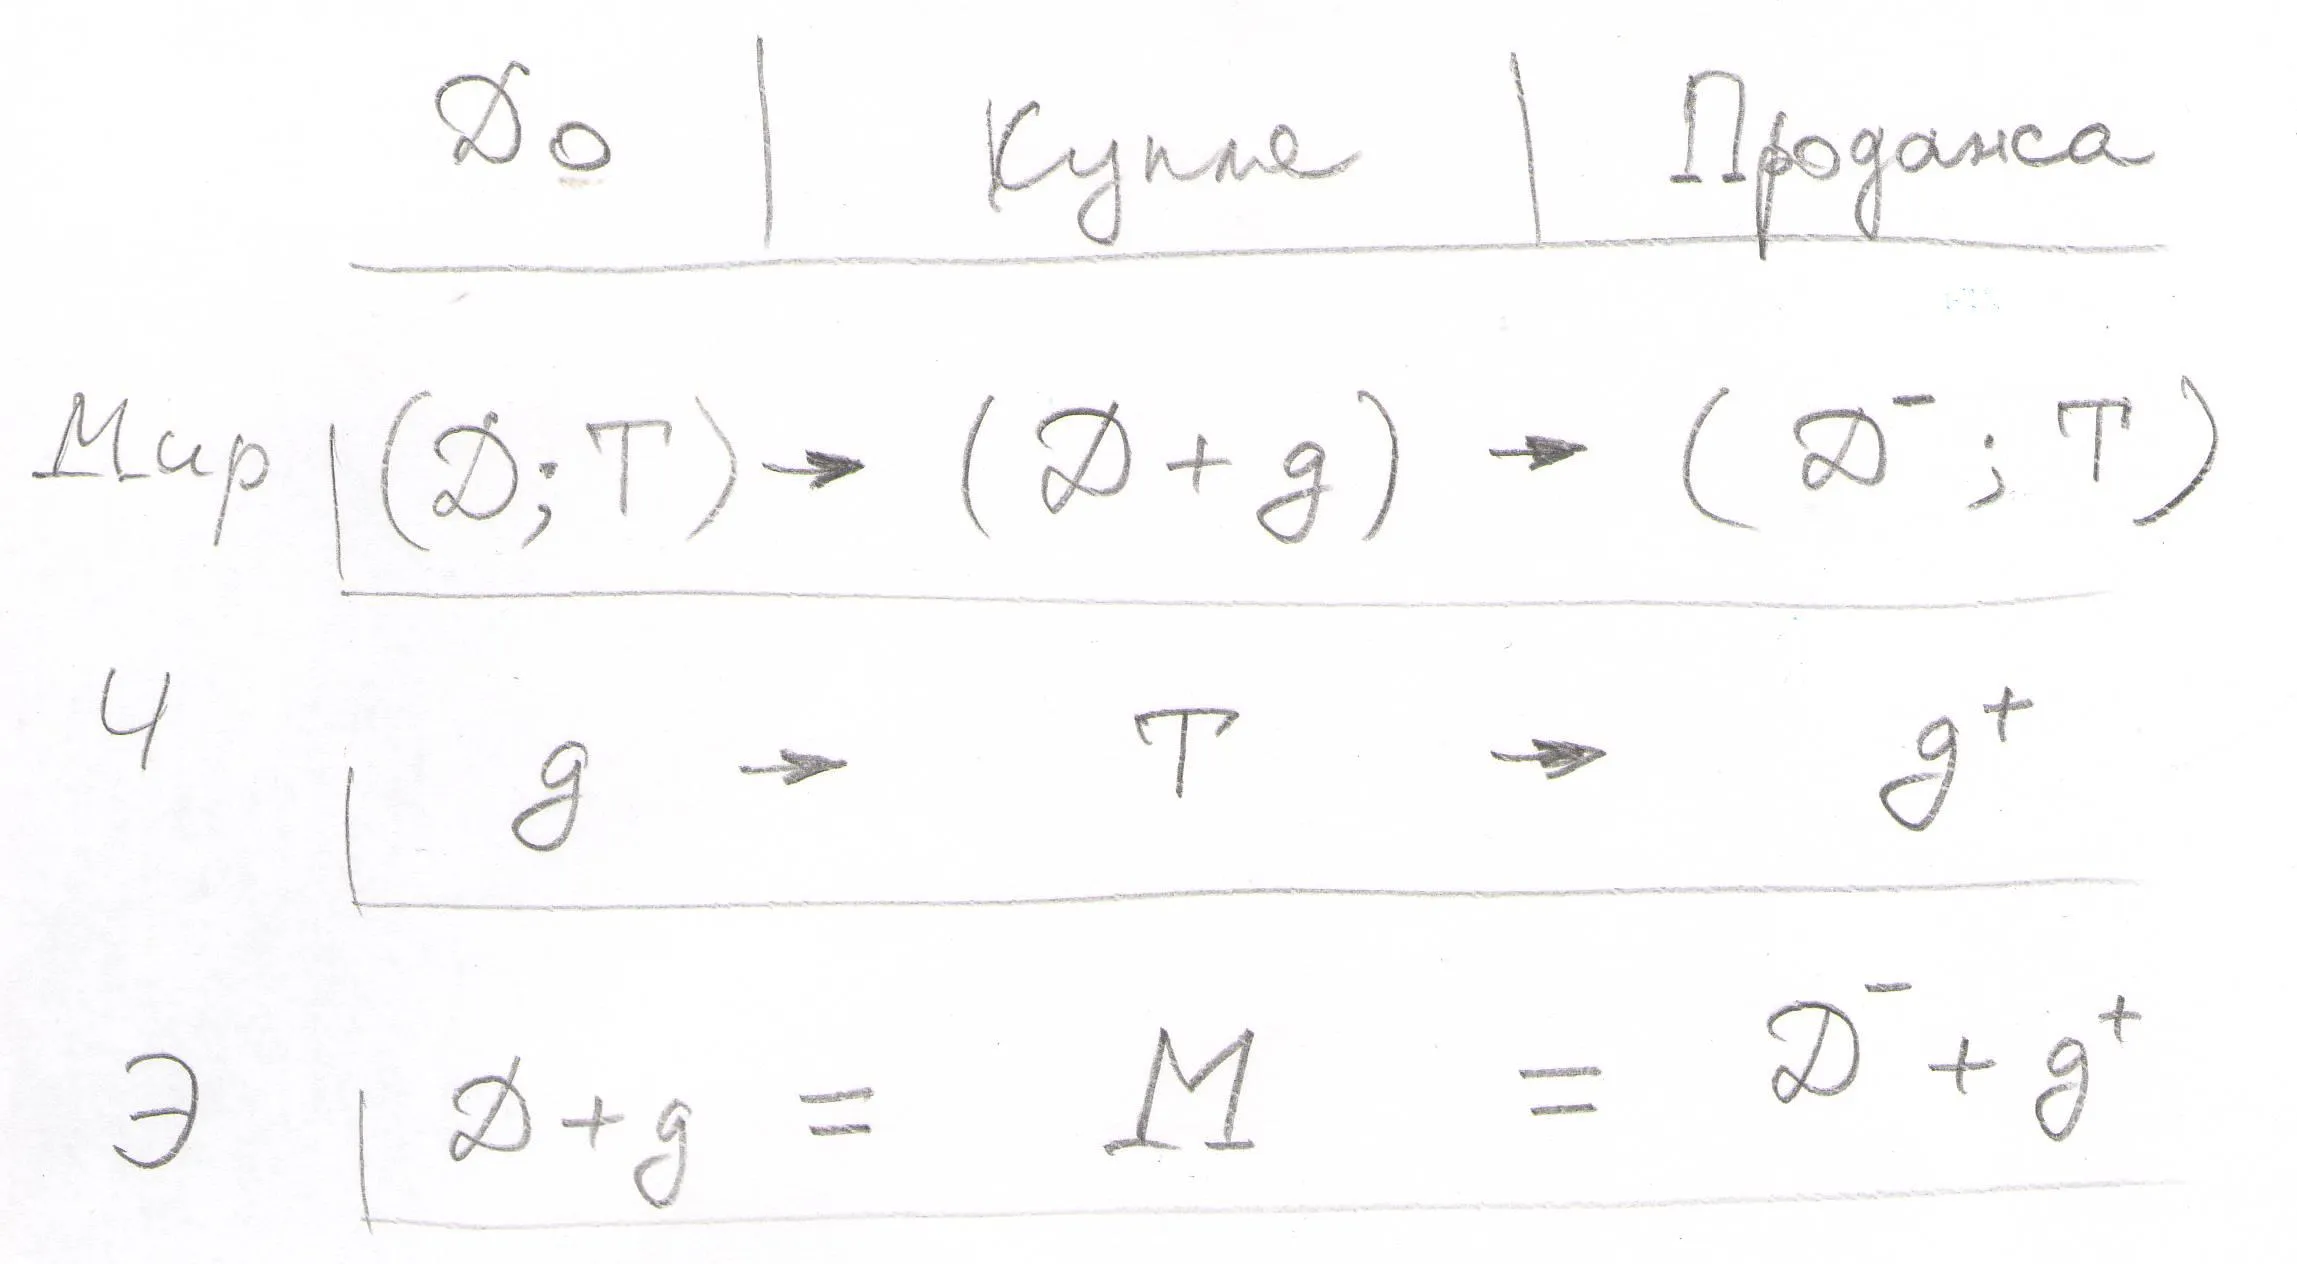 До | Купля | Продажа
Мир | (Д; Т) → (Д + д) → (Д⁻ ; Т)
Ч | д → Т → д⁺
Э | Д + д = М = Д⁻ + д⁺